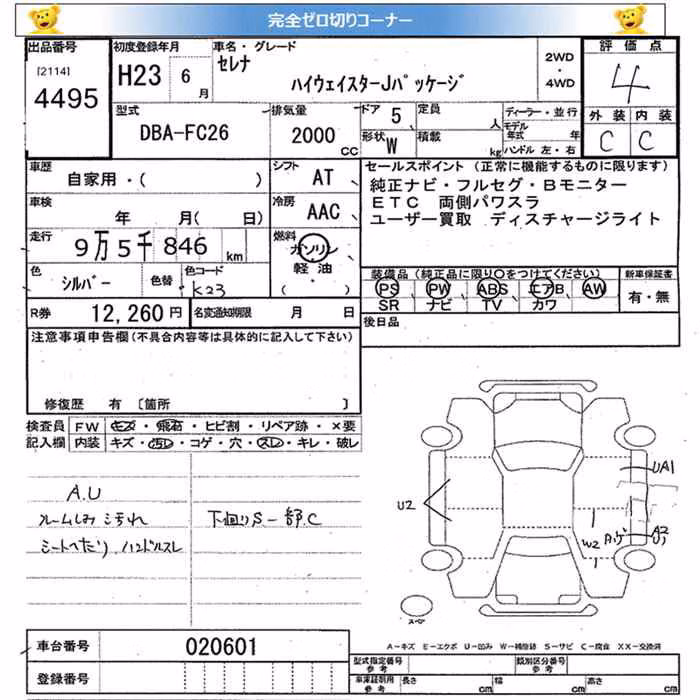 完全ゼロ切りコーナー
出品番号 初度登録年月 車名・グレード 評価点
[2114] 4495 H23 6月 セレナ ハイウェイスターJパッケージ 2WD・4WD 4
型式 排気量 ドア 5 定員 人 ディーラー・並行 外装 内装
DBA-FC26 2000 CC 形状 W 積載 kg モデル年式 年 ハンドル 左・右 C C
車歴 自家用・( ) シフト AT セールスポイント (正常に機能するものに限ります)
車検 年 月( 日) 冷房 AAC 純正ナビ・フルセグ・Bモニター
ETC 両側パワスラ
ユーザー買取 ディスチャージライト
走行 9万5千846 km 燃料 ガソリン・軽油・( )
色 シルバー 色替 色コード K23
装備品(純正品に限り○をつけてください) 新車保証書
PS PW ABS エアB AW 有・無
SR ナビ TV カワ
R券 12,260円 名変通知期限 月 日 後日品
注意事項申告欄(不具合内容等は具体的に記入して下さい)
修復歴 有 〔箇所 〕
検査員記入欄 FW キズ・飛石・ヒビ割・リペア跡・×要
内装 キズ・汚レ・コゲ・穴・スレ・キレ・破レ
A.U
ルームしみ汚れ 下回りS一部C
シートへたり ハンドルスレ
U2
UA1
W2
A2
スペア
A−キズ E−エクボ U−凹み W−補修跡 S−サビ C−腐食 XX−交換済
車台番号 020601
登録番号
型式指定番号 参考 類別区分番号 参考
車庫証明用 参考 長さ cm 幅 cm 高さ cm